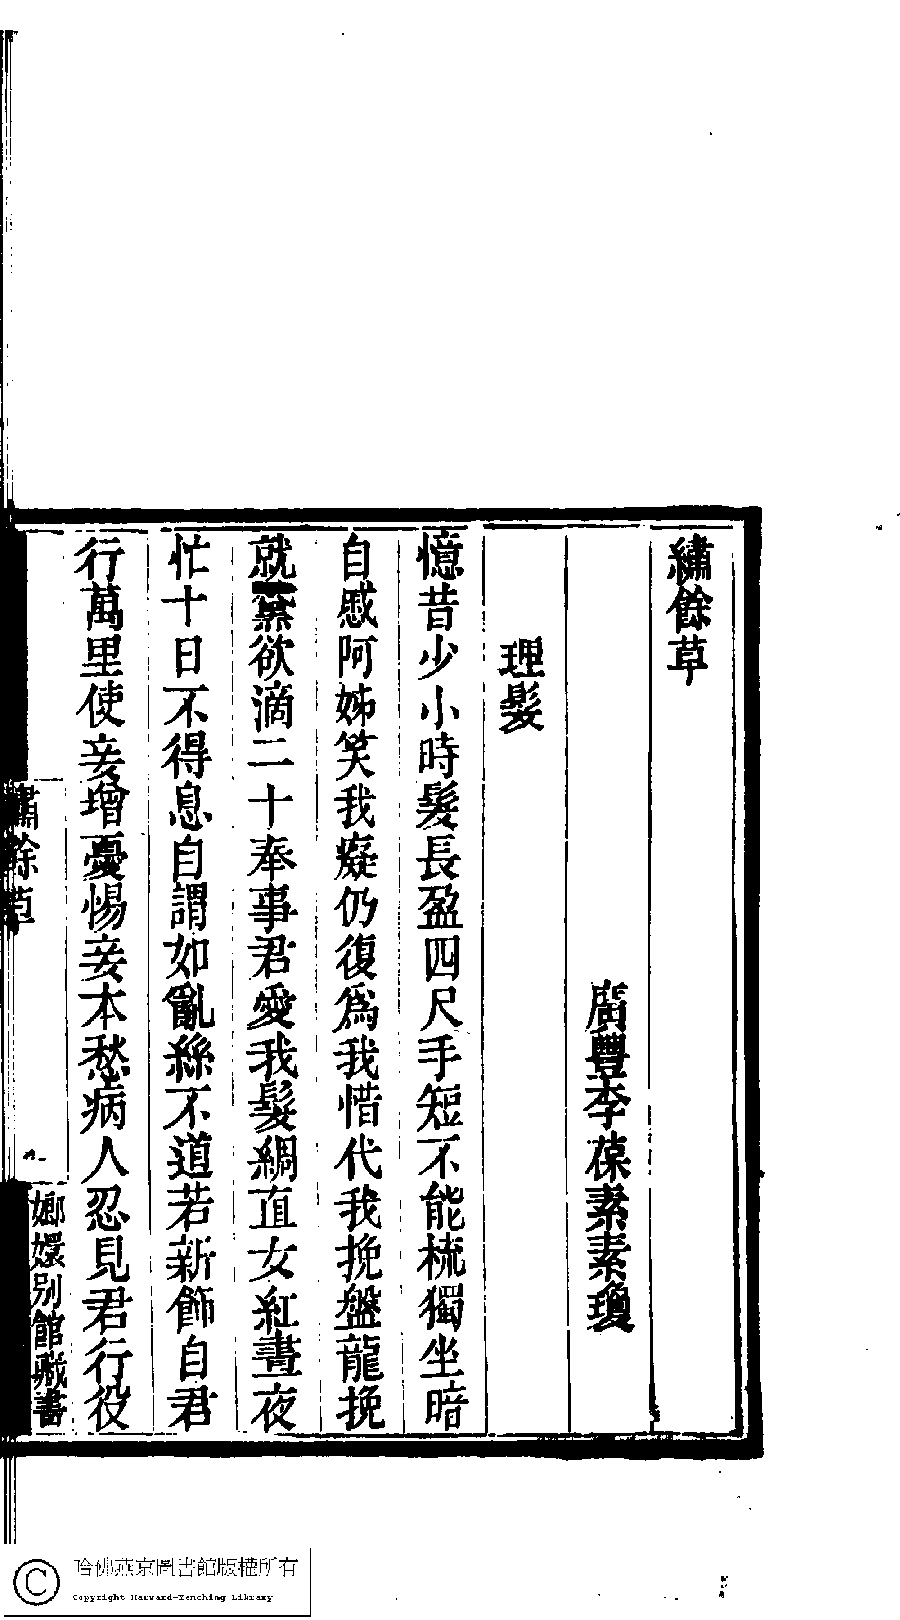 繡餘草
廣豐李葆素素瓊
理髮
憶昔少小時髮長盈四尺手短不能梳獨坐暗
自慼阿姊笑我癡仍復爲我惜代我挽盤龍挽
就鬒欲滴二十奉事君愛我髮綢直女紅晝夜
忙十日不得息自謂如亂絲不道若新飾自君
行萬里使妾增憂惕妾本愁病人忍見君行役
繡餘草
嫏嬛別館藏書
哈佛燕京圖書館版權所有
Copyright Harvard-Yenching Library